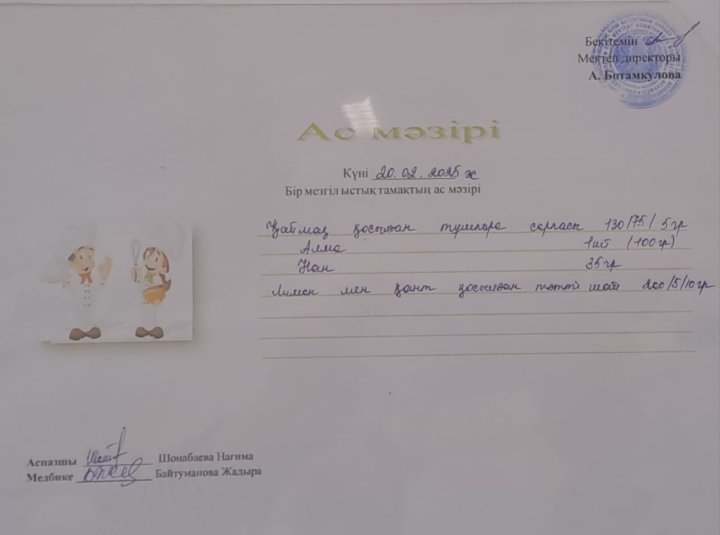 Бекітемін
Мектеп директоры
А. Ботамкулова
Ас мәзірі
Күні 20.02.2025 ж
Бір мезгіл ыстық тамақтың ас мәзірі
Қаймақ қосылған тушпара сорпасы 130/75/5гр
Алма 1шт (100гр)
Нан 35гр
Лимон мен қант қосылған тәтті шай 200/5/10гр
Аспазшы Шонабаева Нағима
Медбике Байтуманова Жадыра